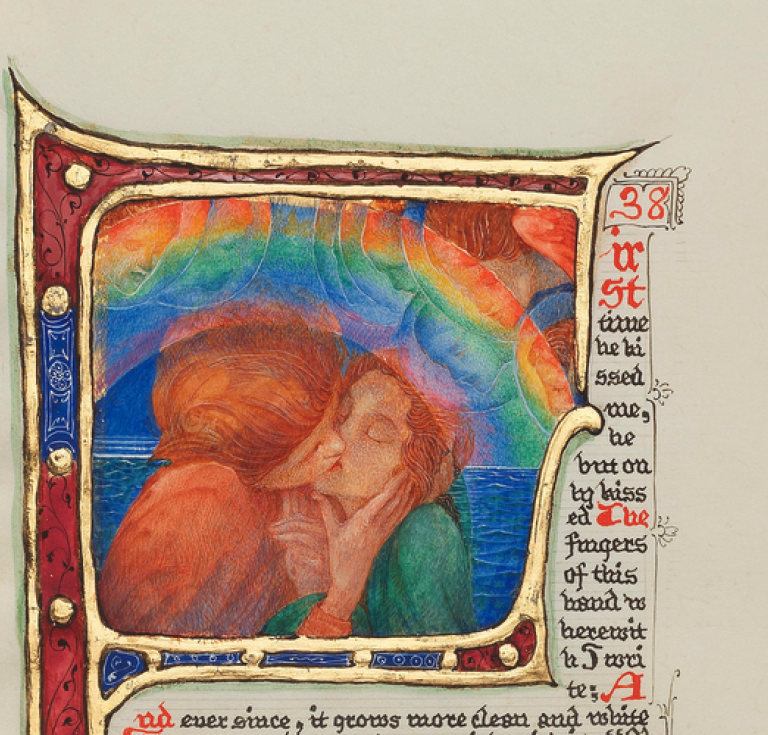 38
ir
st
time
he ki
ssed
me,
he
but on
ly kiss
ed The
fingers
of this
hand w
herewit
h I wri
te; A
nd ever since, it grows more clean and white